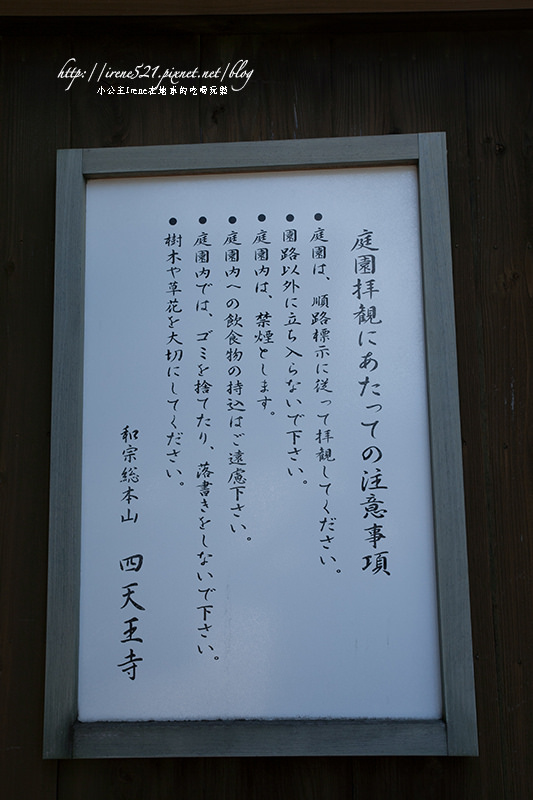 http://irene521.pixnet.net/blog
小公主Irene在地球的吃喝玩樂
庭園拝観にあたっての注意事項
●庭園は、順路標示に従って拝観してください。
●園路以外に立ち入らないで下さい。
●庭園内は、禁煙とします。
●庭園内への飲食物の持込はご遠慮下さい。
●庭園内では、ゴミを捨てたり、落書きをしないで下さい。
●樹木や草花を大切にしてください。
和宗総本山 四天王寺